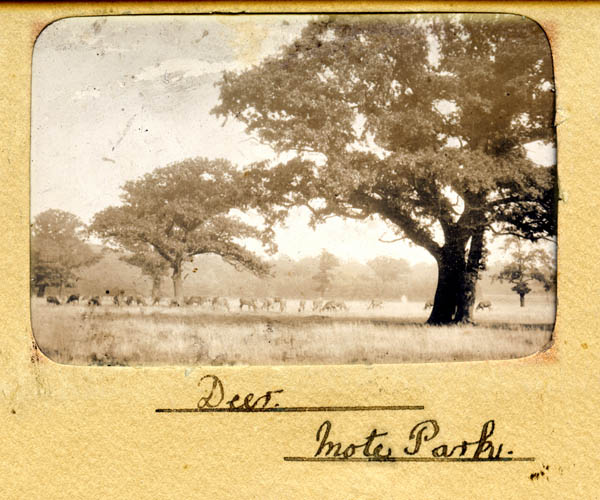 Deer.
Mote Park.